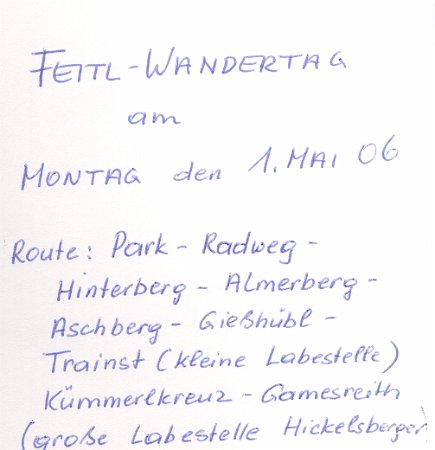 FEITL-WANDERTAG
am
MONTAG den 1. MAI 06
Route: Park - Radweg -
Hinterberg - Almerberg -
Aschberg - Gießhübl -
Trainst (kleine Labestelle)
Kümmerlkreuz - Gamesreith
(große Labestelle Hickelsberger